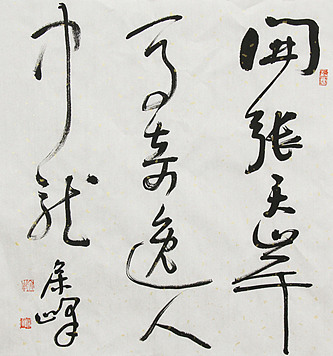 開張天岸
馬奇逸人
中龍
峰